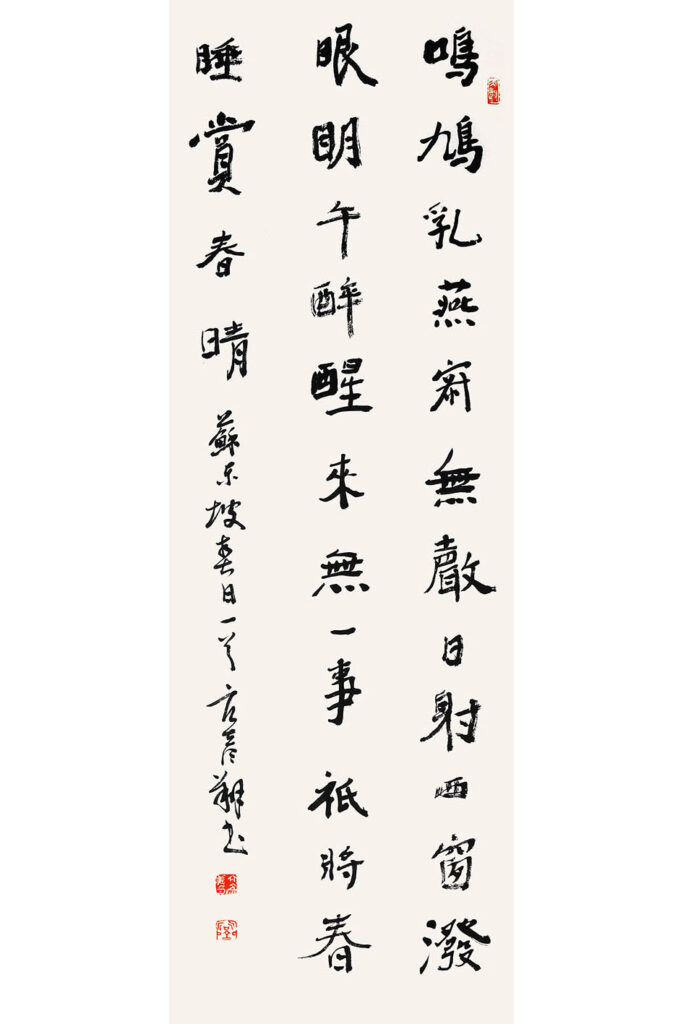 鳴鳩乳燕寂無聲日射西窗潑
眼明午醉醒來無一事祗將春
睡賞春晴 蘇东坡春日一首 方彦翔书